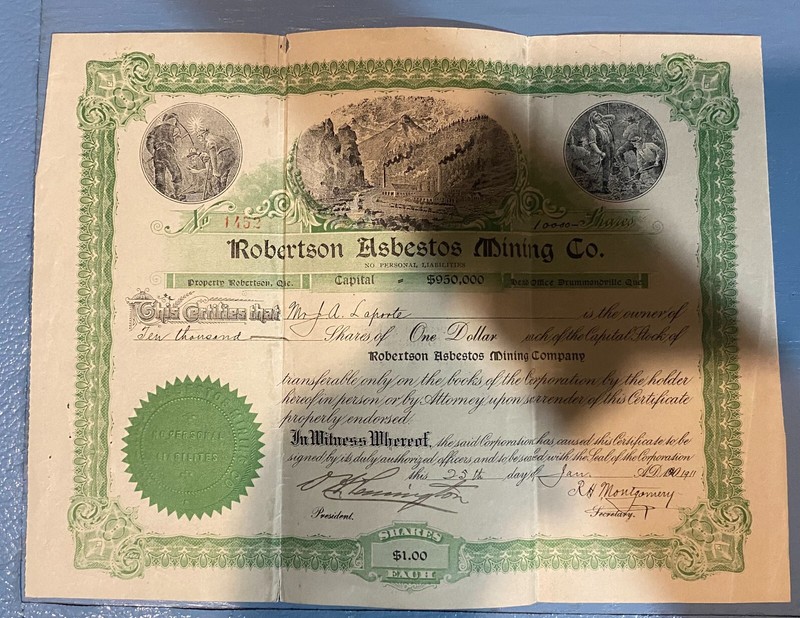 No 1452 10000 Shares
Robertson Asbestos Mining Co.
NO PERSONAL LIABILITIES
Property Robertson, Que. Capital $950,000 Head Office Drummondville Que.
This Certifies that Mr J. A. Laporte is the owner of
Ten thousand Shares of One Dollar each of the Capital Stock of
Robertson Asbestos Mining Company
transferable only on the books of the Corporation by the holder
hereof in person or by Attorney upon surrender of this Certificate
properly endorsed.
In Witness Whereof, the said Corporation has caused this Certificate to be
signed by its duly authorized officers and to be sealed with the Seal of the Corporation
this 23th day of Jan. A.D. 1911
R H Montgomery
President. Secretary.
NO PERSONAL
LIABILITIES
SHARES
$1.00
EACH